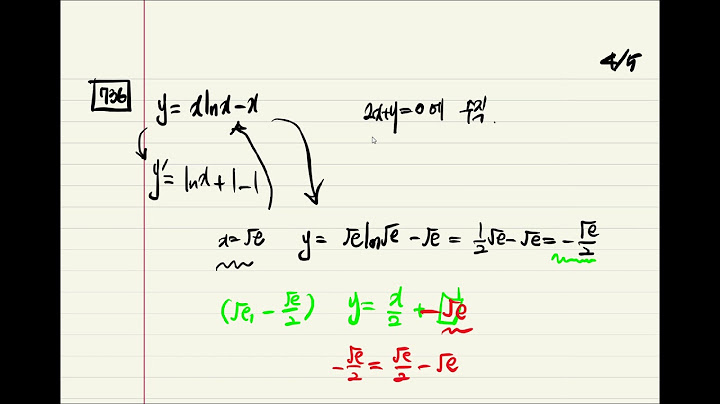 4/5
736
y = xlnx - x
2x+y=0에 수직.
y' = lnx + 1 - 1
x = √e y = √e ln√e - √e = 1/2 √e - √e = - √e/2
(√e, - √e/2) y = x/2 + - √e
- √e/2 = √e/2 - √e